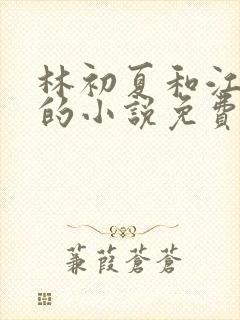 林初夏和江
的小説免費
蒹葭蒼蒼